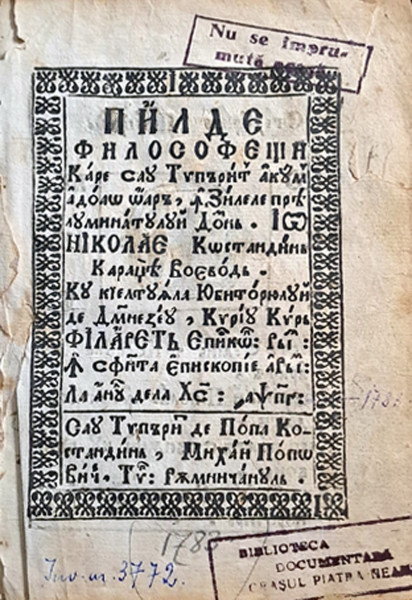 Nu se impru-
mută
ПИ́ЛДЕ
ФИЛОСОФЕЩИ
Каре сау Тѵпъри́т акꙋм
адоаѡ ѿаръ, ꙟ Зилеле прѣ
лꙋминатꙋлꙋй До́мнь. ІѠ
НІКОЛАЄ Кѡстандинь
Караџѣ Воєводь.
Кꙋ кїелтꙋѧла Юбиторюлꙋй
де Дꙋмнеꙁеꙋ, Кѵрїꙋ Кѵрь
ФІЛАРЕТЬ Єпⷭ҇кꙋ: Ры́м:
Ꙟ сфи́та Єпископїе а Ры́м:
Ла анꙋ дела Хс҃: ҂аѱпг҃:
Сау Тѵпъри́т де Попа Ко-
стандинь, Миха́й Попѡ
вич, Тѵ: Рѫмничѧнꙋль.
1783
Inv. nr. 3772.
BIBLIOTECA
DOCUMENTARĂ
ORAȘUL PIATRA NEAM